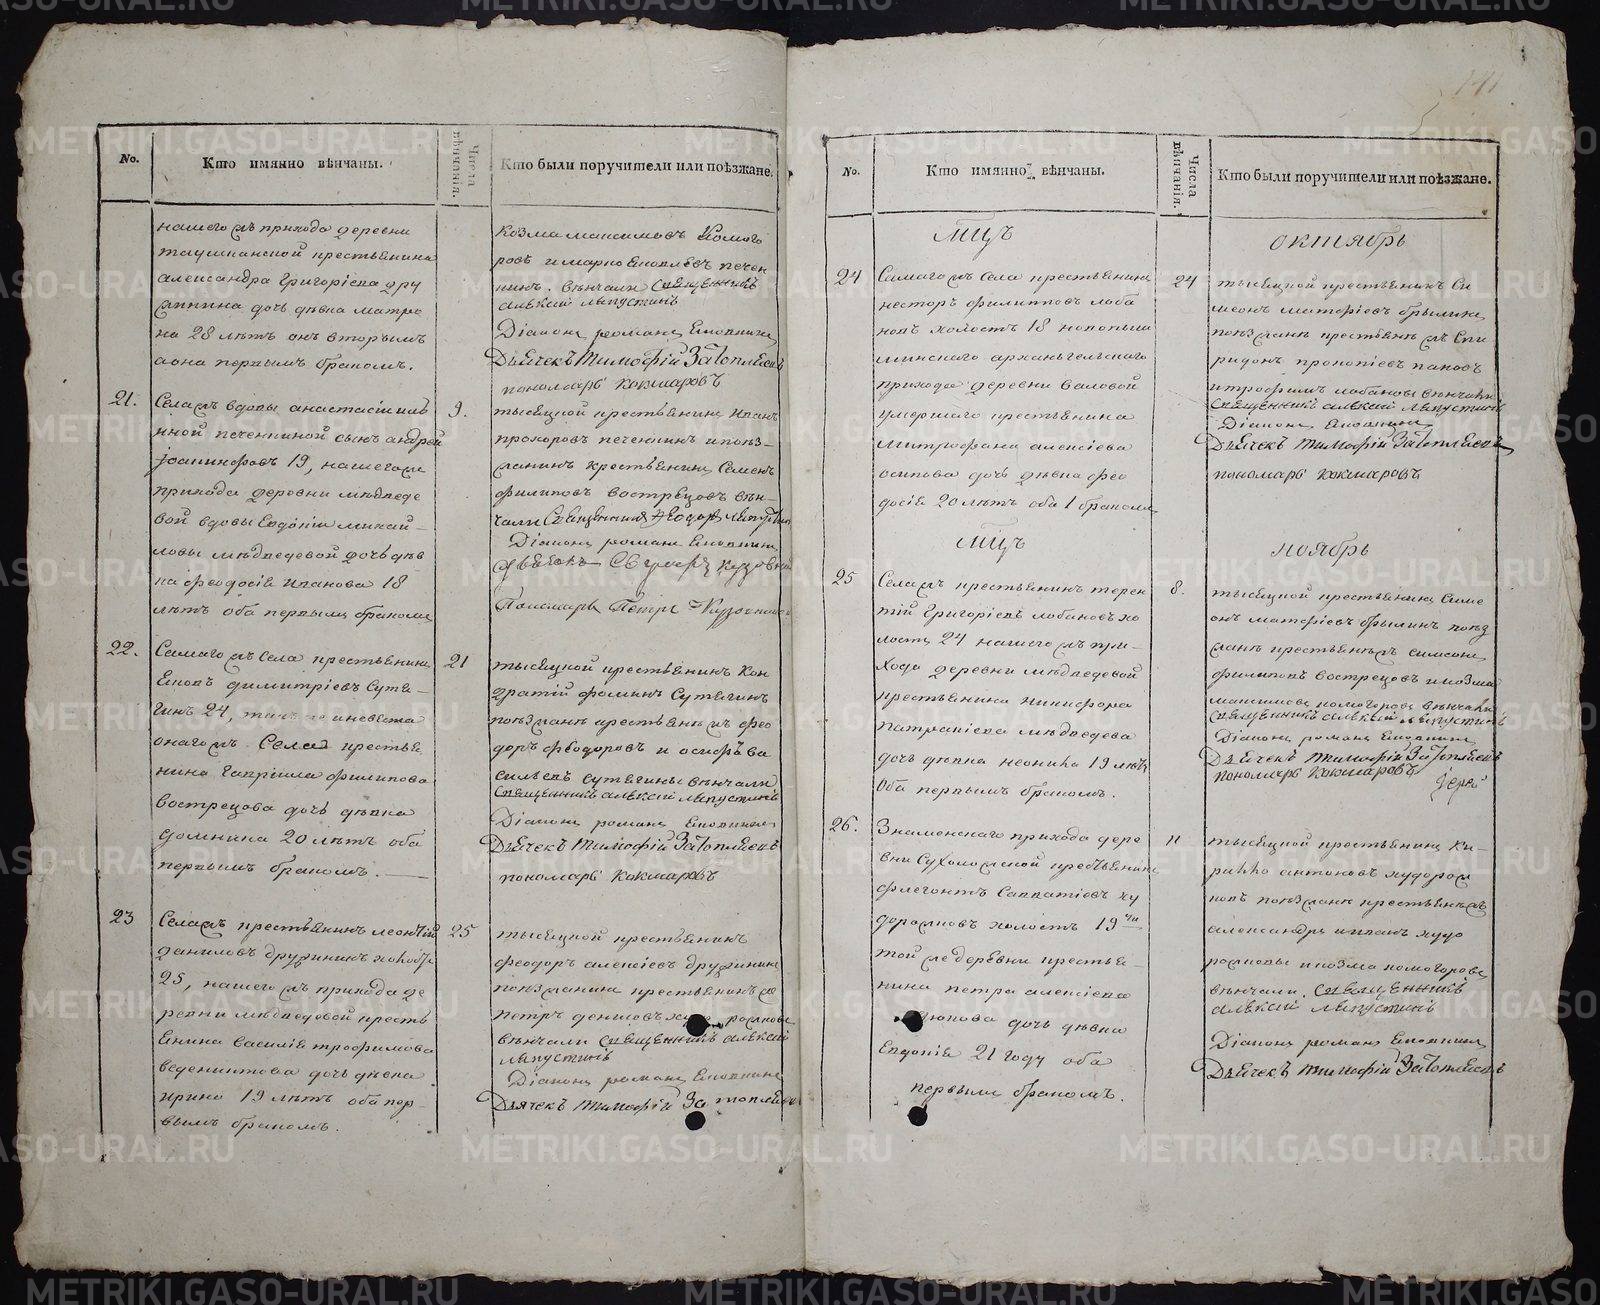 141
No.
Кто имянно вѣнчаны.
Числа вѣнчанія.
Кто были поручители или поѣзжане.
нашегожъ прихода деревни
крестьянина
александра Григоріева дру
жинина дочь дѣвка матре
на 28 лѣтъ онъ вторымъ
аона первымъ бракомъ.
козма максимовъ Комого
ровъ имарко Яковлевъ печен
кинъ. вѣнчали священникъ
алексій Ляпустинъ
Діаконъ романъ
Дьячекъ Тимофій Затопляевъ
пономарь Кокшаровъ
21.
Селажъ вдовы анастасіи иль
иной печенкиной сынъ андрей
іоанникіовъ 19, нашегожъ
прихода деревни мѣдведе
вой вдовы Евдокіи михай
ловы мѣдведевой дочь дѣв
ка феодосія иванова 18
лѣтъ оба первымъ бракомъ
9.
тысяцкой крестьянинъ иванъ
прохоровъ печенкинъ ипоѣз-
жанинъ крестьянинъ Семенъ
филиповъ вострецовъ вѣн-
чали Священникъ Феодоръ Ляпустинъ
Діаконъ романъ
Пономарь Петръ
22.
Самагожъ села крестьянинъ
Яковъ димитріевъ Сутя-
гинъ 24, иневѣста
онагожъ Села крестья
нина Гавріила филипова
вострецова дочь дѣвка
домника 20 лѣтъ оба
первымъ бракомъ.
21
тысяцкой крестьянинъ Кон
дратій фоминъ Сутягинъ
поѣзжана крестьянажъ фео
доръ феодоровъ и осифъ ва
сильевъ сутягины вѣнчали
Священникъ алексій Ляпустинъ
Діаконъ романъ
Дьячекъ Тимофій Затопляевъ
пономарь Кокшаровъ
23
Селажъ крестьянинъ леонтій
даниловъ дружининъ холостъ
25, нашегожъ прихода де
ревни мѣдведевой кресть
янина василія трофимова
веденитова дочь дѣвка
ирина 19 лѣтъ оба пер-
вымъ бракомъ.
25
тысяцкой крестьянинъ
феодоръ алексіевъ дружининъ
поѣзжанина крестьянинжъ
петръ денисовъ
вѣнчали священникъ алексій
Ляпустинъ
Діаконъ романъ
Дьячекъ Тимофій Затопляевъ
No.
Кто имянно вѣнчаны.
Числа вѣнчанія.
Кто были поручители или поѣзжане.
Мцъ
октябрь
24
Самагожъ Села крестьянинъ
несторъ филиповъ лоба
новъ холостъ 18 новопыш
минскаго архангельскаго
прихода деревни валовой
умершаго крестьянина
митрофана алексіева
осипова дочь дѣвка фео
досія 20 лѣтъ оба 1 бракомъ
24
тысяцкой крестьянинъ Си
меонъ матфіевъ брылинъ
поѣзжанъ крестьянъжъ Спи
ридонъ прокопіевъ пановъ
итрофимъ лобановы вѣнчали
Священникъ алексій Ляпустинъ
Діаконъ
Дьячекъ Тимофій Затопляевъ
пономарь Кокшаровъ
Мцъ
ноябрь
25
Селажъ крестьянинъ терен
тій Григоріевъ лобановъ хо
лостъ 24 нашегожъ при-
хода деревни мѣдведевой
крестьянина никифора
патракіева мѣдведева
дочь дѣвка неонила 19 лѣтъ
оба первымъ бракомъ.
8.
тысяцкой крестьянинъ Симе
онъ матфіевъ брылинъ поѣз
жана крестьянажъ симеонъ
филиповъ вострецовъ икозма
максимовъ комогоровъ вѣнчали
священникъ алексій Ляпустинъ
Діаконъ романъ
Дьячекъ Тимофій Затопляевъ
пономарь Кокшаровъ
26.
Знаменскаго прихода дере
вни Сухоложской крестьянинъ
флегонтъ Савватіевъ ху
дорожковъ холостъ 19
тойжедеревни крестья-
нина петра алексіева
дочь дѣвка
Евдокія 21 году оба
первымъ бракомъ.
11
тысяцкой крестьянинъ Ки-
рилко антоновъ худорож
ковъ поѣзжана крестьянажъ
александръ ииванъ худо
рожковы икозма комогоровъ
вѣнчали. священникъ
алексій Ляпустинъ
Діаконъ романъ
Дьячекъ Тимофій Затопляевъ
METRIKI.GASO-URAL.RU